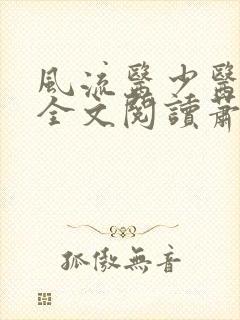 風流醫少醫
全文閱讀蕭
孤傲無音